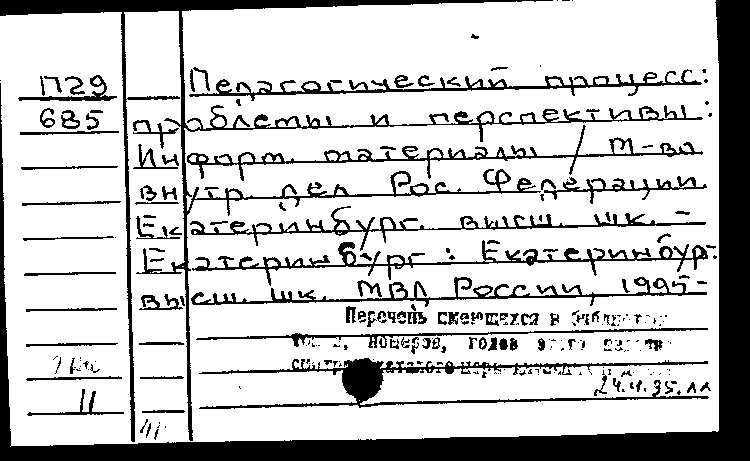 П29
685
Педагогический процесс:
проблемы и перспективы:
Информ. материалы / М-во
внутр. дел Рос. Федерации.
Екатеринбург. высш. шк. -
Екатеринбург : Екатеринбур.
высш. шк. МВД России, 1995-
Перечень имеющихся в библиотеке
номеров, годов этого издания
11